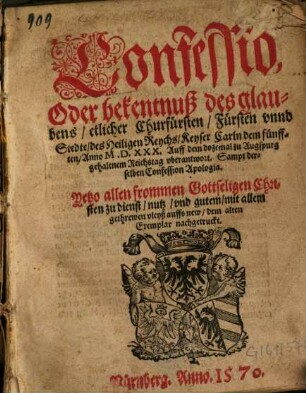 909
Confessio,
Oder bekentnuß des glau-
bens / etlicher Churfürsten / Fürsten vnnd
Stedte / des Heiligen Reychs / Keyser Carln dem fünff-
ten / Anno M. D. XXX. Auff dem dozemal zu Augspurg
gehaltnem Reichstag vberantwort. Sampt der-
selben Confession Apologia.
Yetzo allen frommen Gottseligen Chri-
sten zu dienst / nutz / vnd gutem / mit allem
gethrewen vleyß auffs new / dem alten
Exemplar nachgetruckt.
Nürnberg. Anno. 1570.